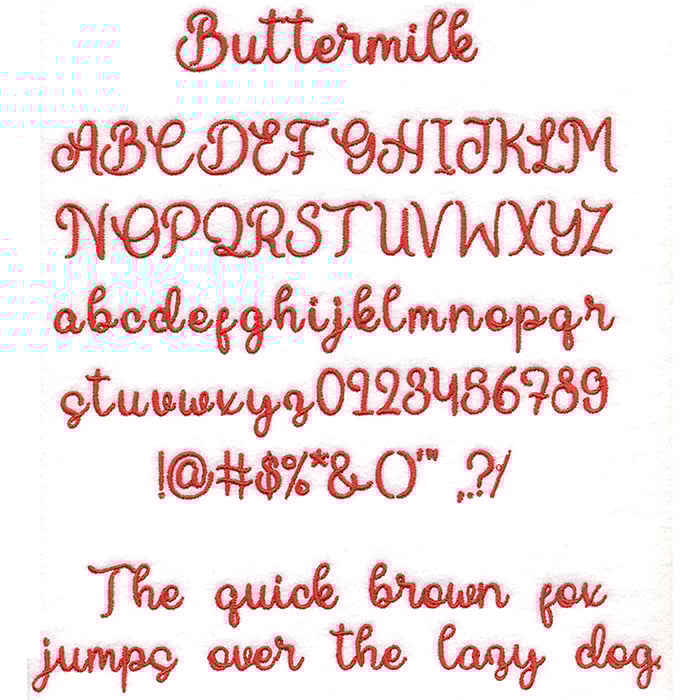 Buttermilk
ABCDEFGHIJKLM
NOPQRSTUVWXYZ
abcdefghijklmnopqr
stuvwxyz0123456789
!@#$%*&()'" ,.?/
The quick brown fox
jumps over the lazy dog.